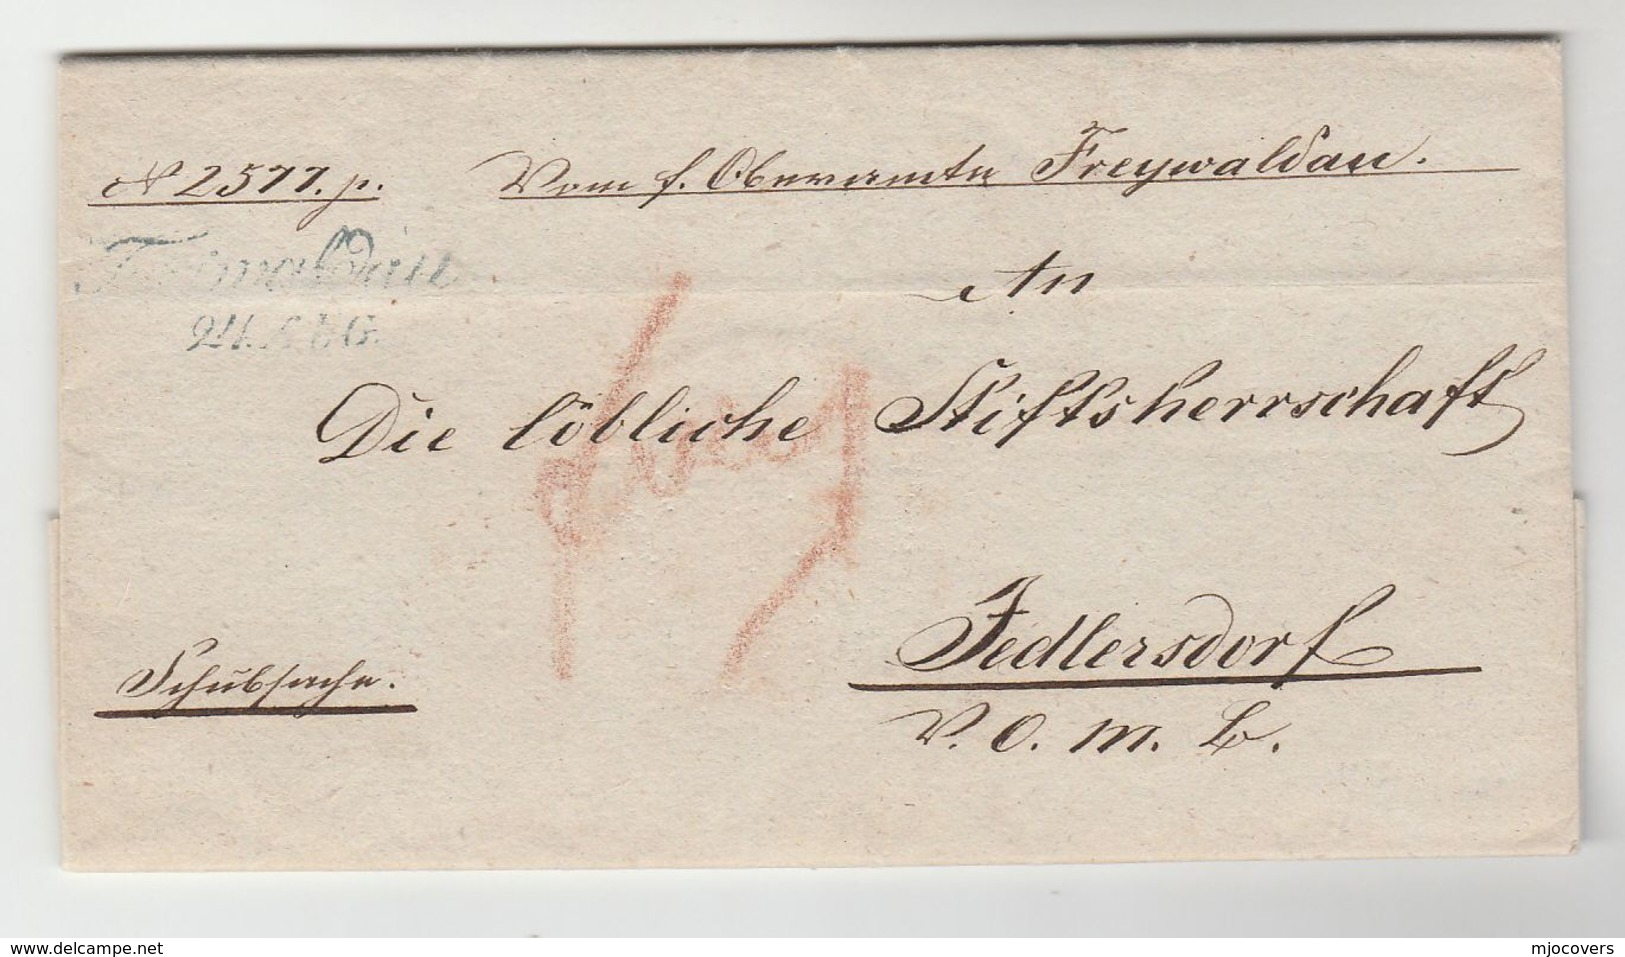 N 2577. p. Vom f. Oberamte Freywaldau.
Freiwaldau
24. FEBG.
An
Die löbliche Stiftsherrschaft
Jedlersdorf
Schubsache.
V. O. M. B.
www.delcampe.net
mjocovers